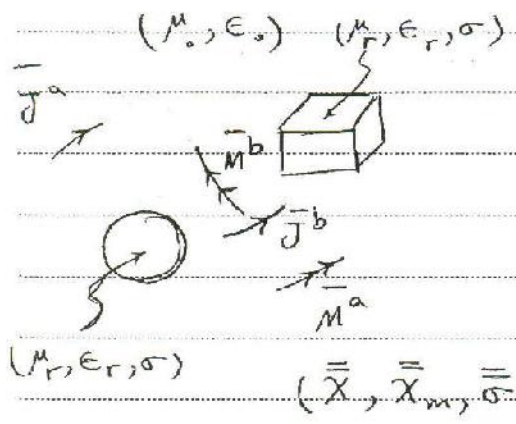 (μ₀, ϵ₀) (μᵣ, ϵᵣ, σ)
J̄ᵃ
M̄ᵇ
J̄ᵇ
M̄ᵃ
(μᵣ, ϵᵣ, σ)
(χ̿, χ̿ₘ, σ̿